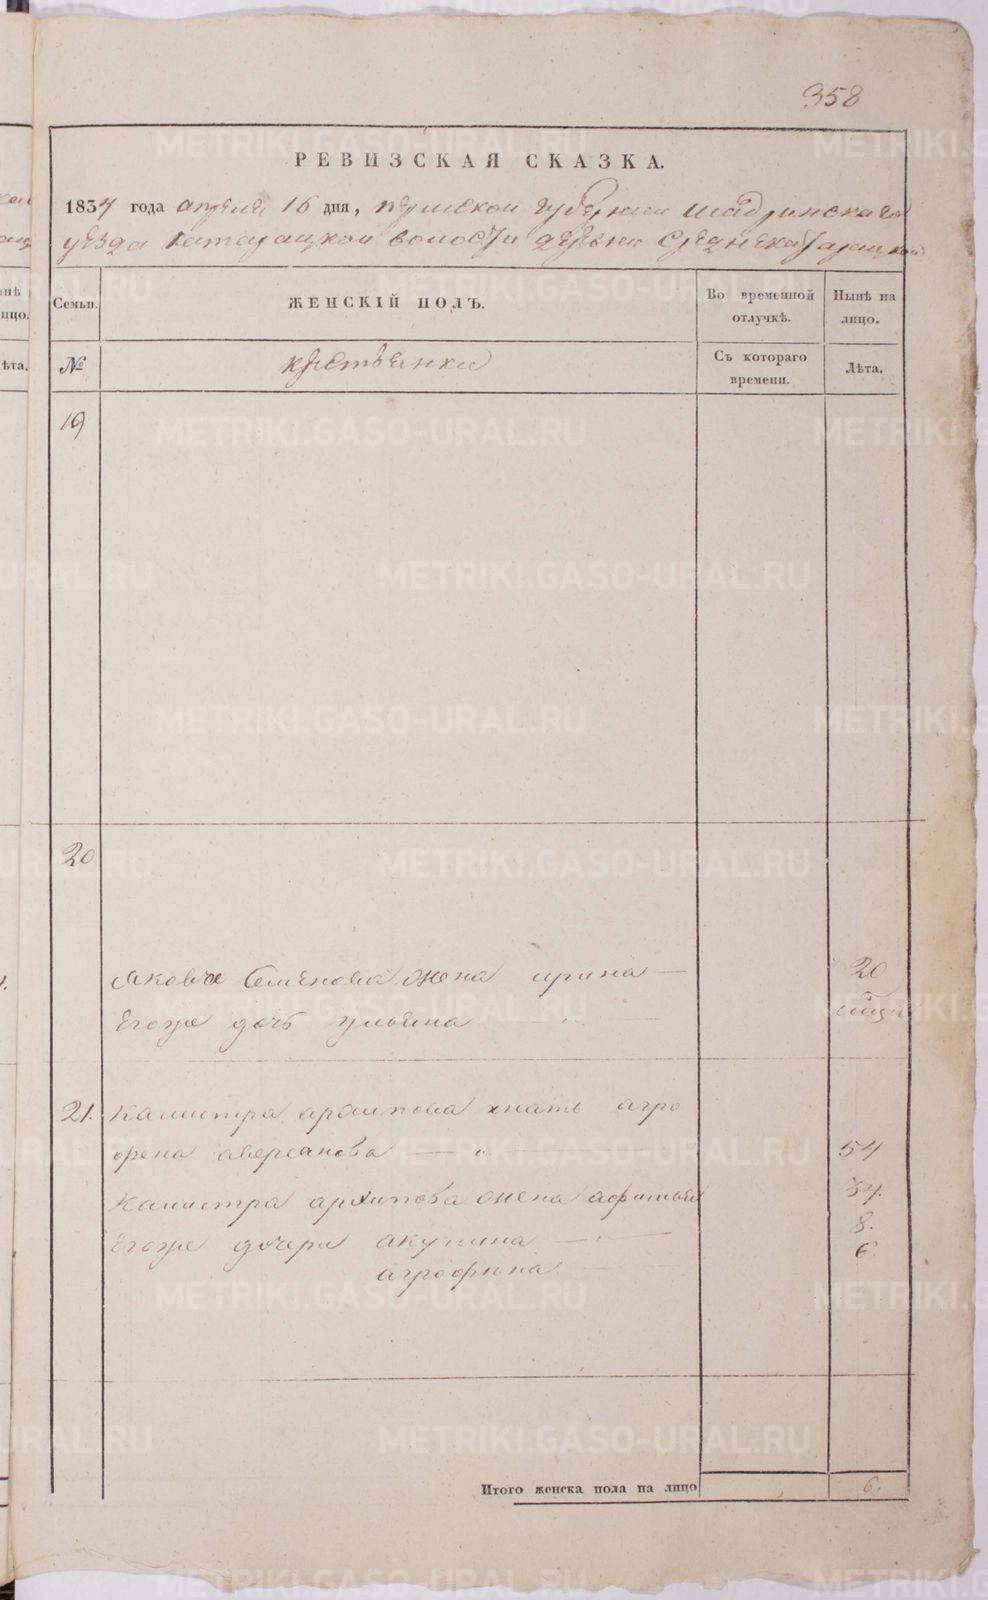 358
РЕВИЗСКАЯ СКАЗКА.
1834 года апреля 16 дня, пермской губернии шадринскаго
уезда катайцкой волости деревни среднекатайцкой
Семьи. ЖЕНСКІЙ ПОЛЪ. Во временной отлучкѣ. Нынѣ на лицо.
№ крестьянки Съ котораго времени. Лѣта.
19
20
якова Семенова жена ирина 20
Егоже дочь ульяна
21. Калистра архипова мать агро
фена аверсанова 54
Калистра архипова жена афимья 34.
Егоже дочери акулина 8.
агрофина 6
Итого женска пола на лицо 6.
METRIKI.GASO-URAL.RU